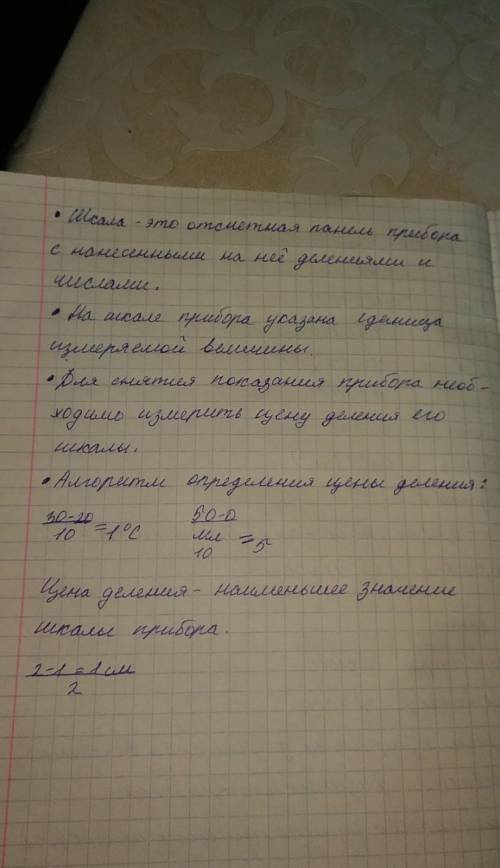 • Шкала - это отсчетная панель прибора
с нанесенными на неё делениями и
числами.
• На шкале прибора указана единица
измеряемой величины.
• Для снятия показания прибора необ-
ходимо измерить цену деления его
шкалы.
• Алгоритм определения цены деления:
30-20 50-0
10 =1°C мл =5
10
Цена деления - наименьшее значение
шкалы прибора.
2-1=1см
2